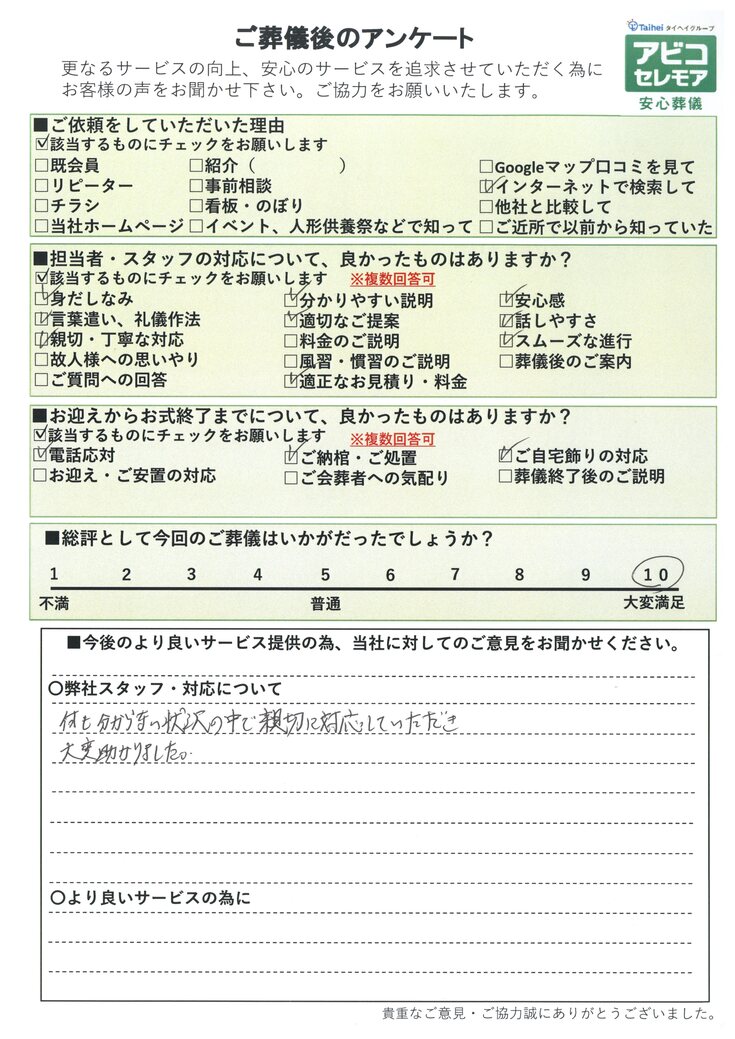 ご葬儀後のアンケート
Taihei タイヘイグループ
アビコ
セレモア
安心葬儀
更なるサービスの向上、安心のサービスを追求させていただく為に
お客様の声をお聞かせ下さい。ご協力をお願いいたします。
■ご依頼をしていただいた理由
☑該当するものにチェックをお願いします
□既会員 □紹介（ ） □Googleマップ口コミを見て
□リピーター □事前相談 ☑インターネットで検索して
□チラシ □看板・のぼり □他社と比較して
□当社ホームページ □イベント、人形供養祭などで知って □ご近所で以前から知っていた
■担当者・スタッフの対応について、良かったものはありますか？
☑該当するものにチェックをお願いします ※複数回答可
☑身だしなみ ☑分かりやすい説明 ☑安心感
☑言葉遣い、礼儀作法 ☑適切なご提案 ☑話しやすさ
☑親切・丁寧な対応 □料金のご説明 ☑スムーズな進行
□故人様への思いやり □風習・慣習のご説明 □葬儀後のご案内
□ご質問への回答 ☑適正なお見積り・料金
■お迎えからお式終了までについて、良かったものはありますか？
☑該当するものにチェックをお願いします ※複数回答可
☑電話応対 ☑ご納棺・ご処置 ☑ご自宅飾りの対応
□お迎え・ご安置の対応 □ご会葬者への気配り □葬儀終了後のご説明
■総評として今回のご葬儀はいかがだったでしょうか？
1 2 3 4 5 6 7 8 9 10
不満 普通 大変満足
■今後のより良いサービス提供の為、当社に対してのご意見をお聞かせください。
〇弊社スタッフ・対応について
何も分からない状況の中で親切に対応していただき
大変助かりました。
〇より良いサービスの為に
貴重なご意見・ご協力誠にありがとうございました。